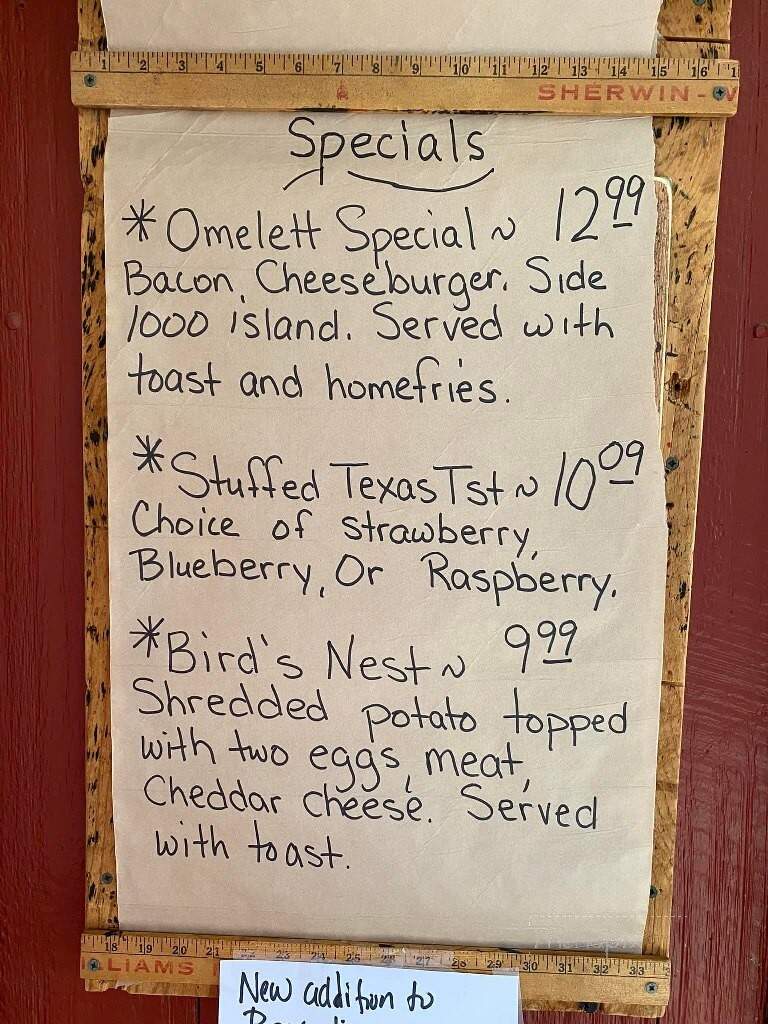 1 2 3 4 5 6 7 8 9 10 11 12 13 14 15 16 1
SHERWIN-W
Specials
*Omelett Special ~ 12.99
Bacon, Cheeseburger. Side
1000 island. Served with
toast and homefries.
*Stuffed Texas Tst ~ 10.09
Choice of strawberry,
Blueberry, Or Raspberry.
*Bird's Nest ~ 9.99
Shredded potato topped
with two eggs, meat,
Cheddar cheese. Served
with toast.
18 19 20 21 22 23 24 25 26 27 28 29 30 31 32 33
LIAMS
New addition to